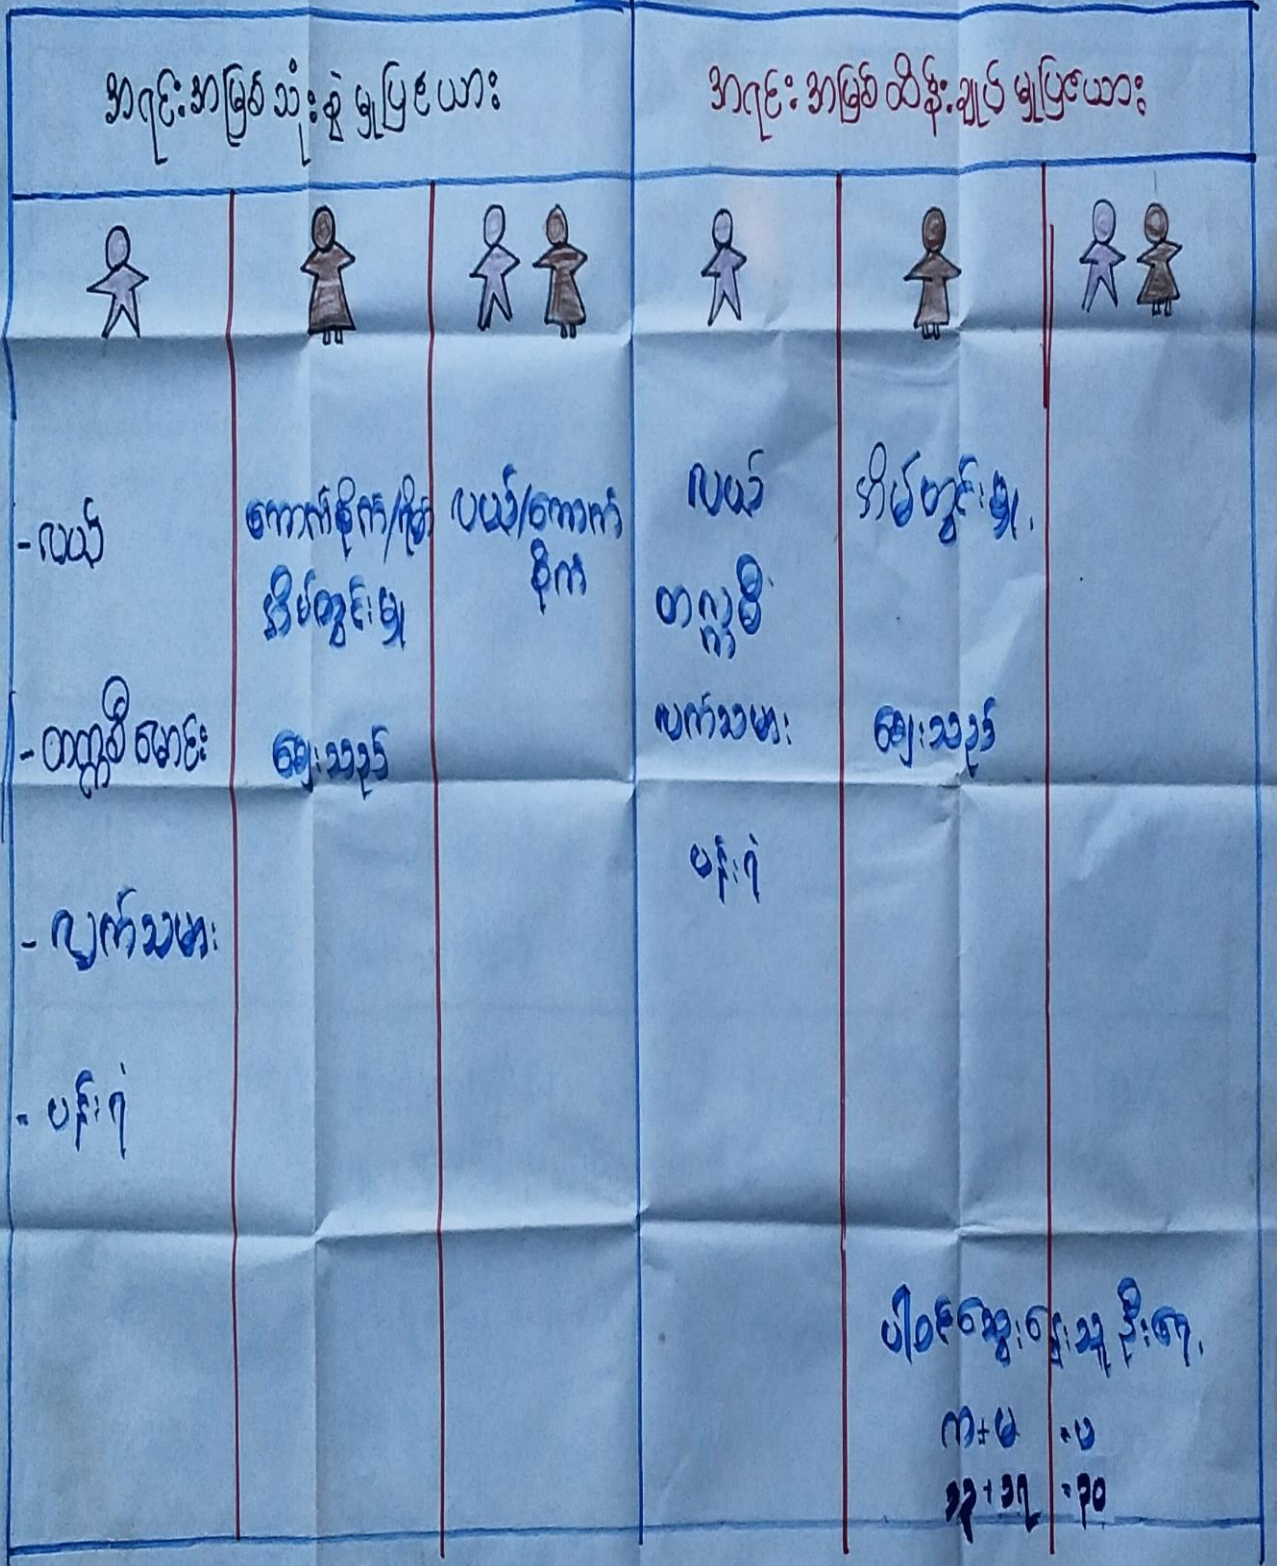 အရင်းအမြစ်သုံးစွဲမှုပြဇယား
အရင်းအမြစ်ထိန်းချုပ်မှုပြဇယား
-လယ်
ကောက်စိုက်/ရိတ်
အိမ်တွင်းမှု
လယ်/ကောက်
စိုက်
လယ်
အိမ်တွင်းမှု
တက္ကစီ
-တက္ကစီမောင်း
ဈေးသည်
လက်သမား
ဈေးသည်
ပန်းရံ
-လျှက်သမား
-ပန်းရံ
ပါဝင်ဆွေးနွေးသူဦးရေ
ကျ+မ =ပ
၁၃+၁၇ =၃၀